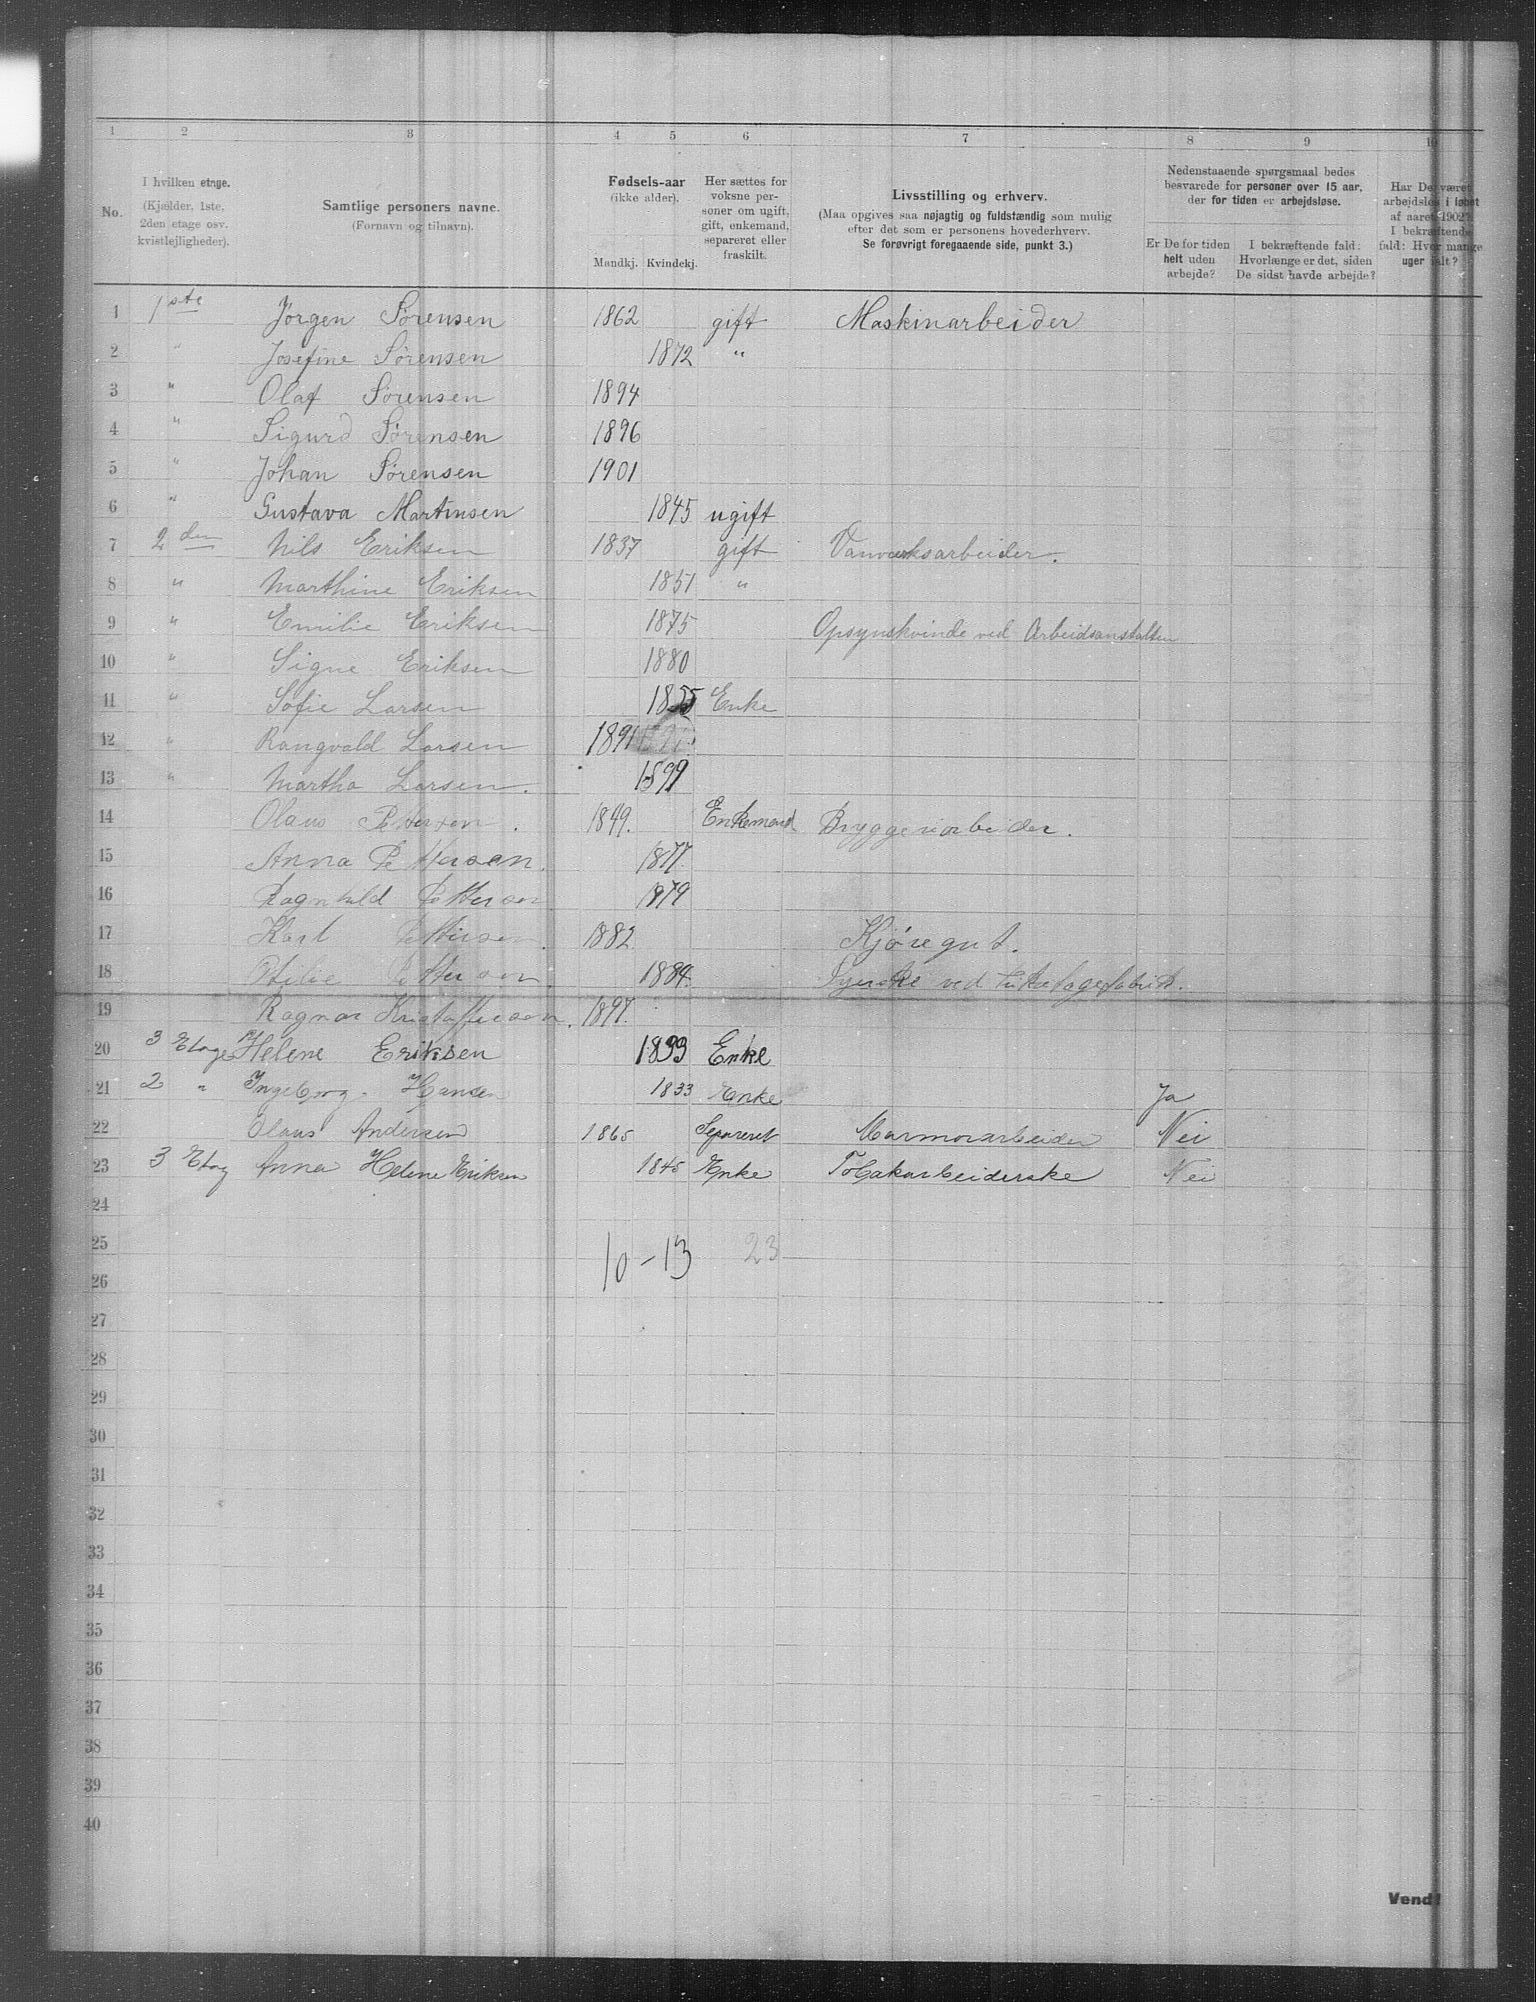 1 2 3 4 5 6 7 8 9 10
No.
I hvilken etage.
(Kjælder, 1ste,
2den etage osv.
kvistlejligheder).
Samtlige personers navne.
(Fornavn og tilnavn).
Fødsels-aar
(ikke alder).
Mandkj. Kvindekj.
Her sættes for
voksne per-
soner om ugift,
gift, enkemand,
separeret eller
fraskilt.
Livsstilling og erhverv.
(Maa opgives saa nøjagtig og fuldstændig som mulig
efter det som er personens hovederhverv.
Se forøvrigt foregaaende side, punkt 3.)
Nedenstaaende spørgsmaal bedes
besvarede for personer over 15 aar,
der for tiden er arbejdsløse.
Er De for tiden
helt uden
arbejde?
I bekræftende fald:
Hvorlænge er det, siden
De sidst havde arbejde?
Har De været
arbejdsløs i løbet
af aaret 1902?
I bekræftende
fald: Hvor mange
uger ialt?
1 1ste Jørgen Sørensen 1862 gift Maskinarbeider
2 " Josefine Sørensen 1872 "
3 " Olaf Sørensen 1894
4 " Sigurd Sørensen 1896
5 " Johan Sørensen 1901
6 " Gustava Martinsen 1845 ugift
7 2den Nils Eriksen 1837 gift Vanverksarbeider.
8 " Marthine Eriksen 1851 "
9 " Emilie Eriksen 1875 Opsynskvinde ved Arbeidsanstalten
10 " Signe Eriksen 1880
11 " Sofie Larsen 1855 Enke
12 " Rangvald Larsen 1891
13 " Martha Larsen. 1899
14 Olaus Pettersen. 1849. Enkemand Bryggeriarbeider.
15 Anna Pettersen. 1877.
16 Ragnhild Pettersen 1879
17 Karl Pettersen. 1882. Kjøregut.
18 Otilie Pettersen. 1884. Syerske ved
19 Ragnar Kristoffersen. 1897.
20 3 Etage Helene Eriksen Enke
21 2 " Ingeborg Hansen 1833 Enke Ja
22 Olaus Andersen 1865 Separeret Marmorarbeider Nei
23 3 Etag Anna Helene Eriksen 1845 Enke Tobakarbeiderske Nei
24
25 10-13 23
26
27
28
29
30
31
32
33
34
35
36
37
38
39
40
Vend!